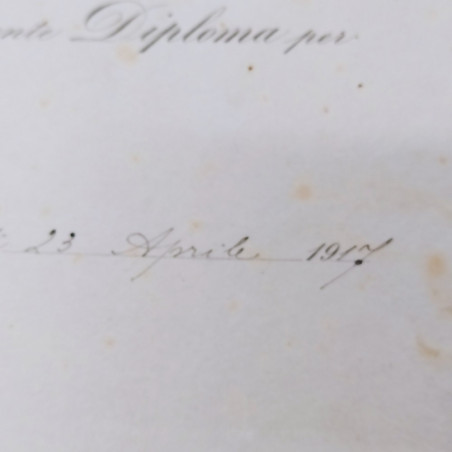 Diploma per
23 Aprile 1917